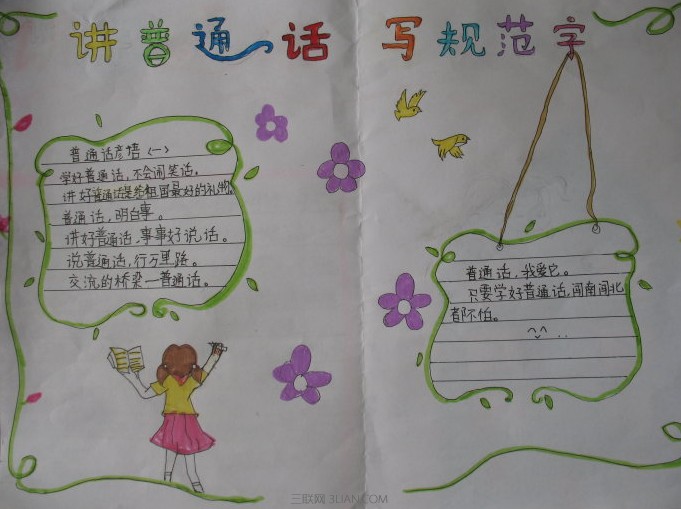 讲普通话 写规范字
普通话彦悟〈一〉
学好普通话,不会闹笑话。
讲好普通话是给祖国最好的礼物。
普通话,明白事。
讲好普通话,事事好说话。
说普通话,行万里路。
交流的桥梁一普通话。
普通话,我爱它。
只要学好普通话,闯南闯北
都不怕。
三联网 3LIAN.COM